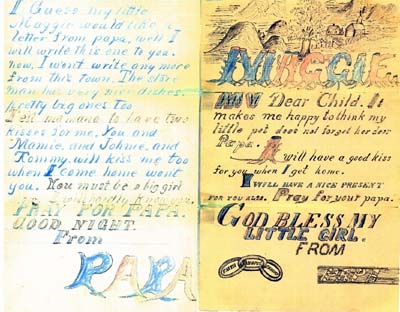 I Guess my little
Maggie would like a
letter from papa, well I
will write this one to you.
now, I wont write any more
from this town. The store
man has very nice dishes,
pretty big ones too
Tell to have two
kisses for me, You, and
Mamie, and Johnie, and
Tommy, will kiss me too
when I come home wont
you. You must be a big girl
PRAY FOR PAPA.
GOOD NIGHT
From
PAPA
MAGGIE.
MY Dear Child. It
makes me happy to think my
little pet does not forget her dear
Papa. I
will have a good kiss
for you when I get home.
I WILL HAVE A NICE PRESENT
FOR YOU ALSO. Pray for your papa.
GOD BLESS MY
LITTLE GIRL.
FROM